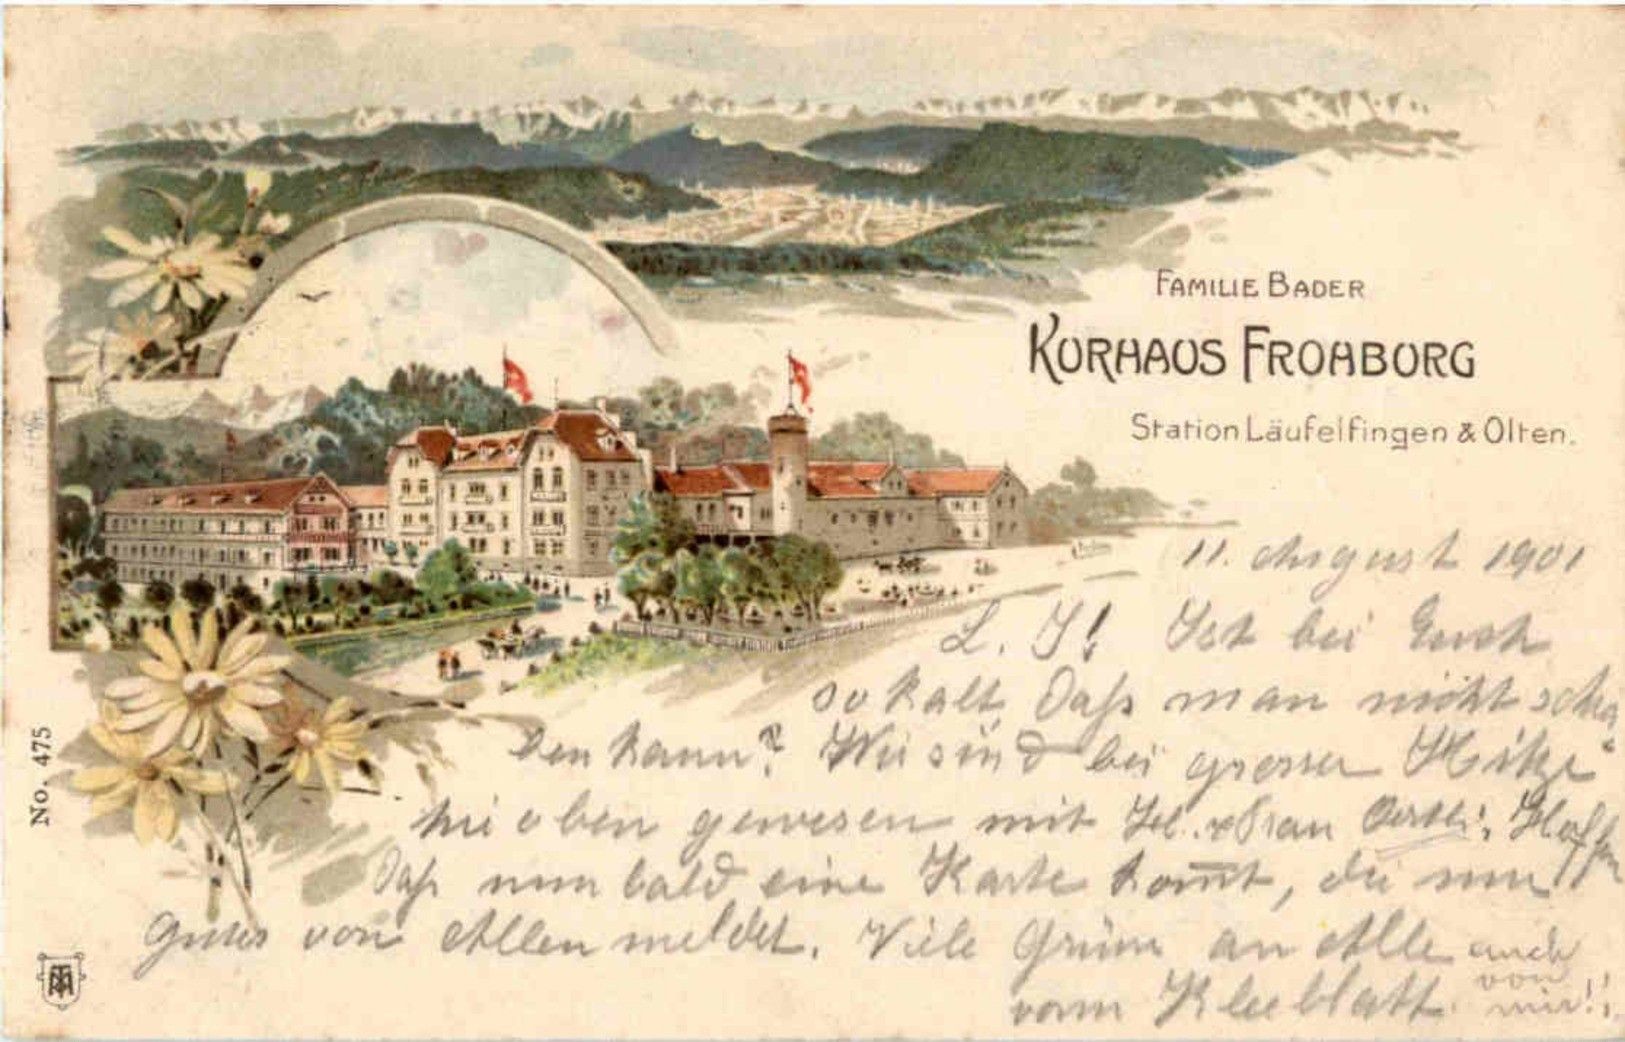 FAMILIE BADER
KURHAUS FROHBURG
Station Läufelfingen & Olten.
11. August 1901
L. J! Ist bei Euch
so kalt daß man nicht schrei
ben kann? Wir sind bei grosser Hitze
hie oben gewesen mit Frau Hoffen
daß nun bald eine Karte kom̅t, die nur
gutes von Allen meldet. Viele Grüsse an Alle auch
von
vom Kleeblatt. mir!!
No. 475